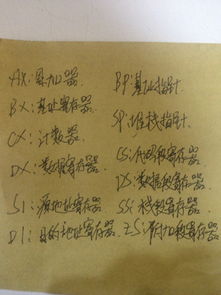 AX:累加器 BP:基址指针
BX:基址寄存器 SP:堆栈指针
CX:计数器 CS:代码段寄存器
DX:数据寄存器 DS:数据段寄存器
SI:源地址寄存器 SS:栈段寄存器
DI:目的地址寄存器 ES:附加段寄存器